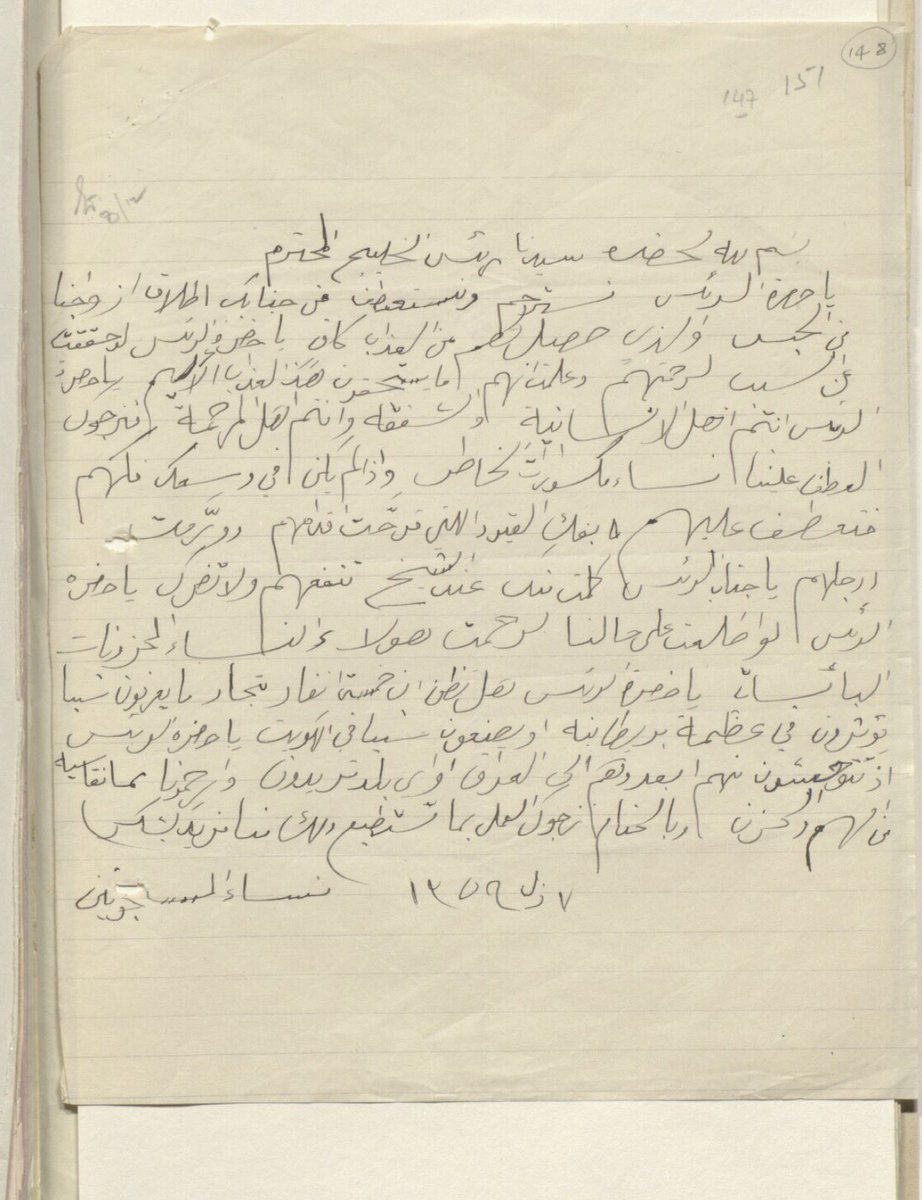 148
151
147
بسم الله لحضرة سيدنا رئيس الخليج المحترم
يا حضرة الرئيس نسترحم ونستعطف من جنابك اطلاق ازواجنا
من الحبس والذي حصل لهم من العذاب كان يا حضرة الرئيس لو حققت
عن السبب لرحمتهم وعلمت انهم ما يستحقون هذا لعذاب الأليم يا حضرة
الرئيس انتم اهل الانسانية والشفقة وانتم اهل المرحمة فنرجوك
العطف علينا نساء مكسورات الخاطر واذا لم يكن في وسعك فكهم
فتعطف عليهم بفك القيود اللتي قرحت اقدامهم وورمت
ارجلهم يا جناب الرئيس كلمة منك عند الشيخ تنفعهم ولا تضرك يا حضرة
الرئيس لو اطلعت على حالنا لرحمت هولاء النساء المحزونات
البائسات يا حضرة الرئيس هل تظن ان خمسة انفار تجار ما يعرفون شيا
يؤثرون في عظمة بريطانيه او يصنعون شيا في الكويت يا حضرة الرئيس
اذ تتوحشون منهم ابعدوهم الى العراق او اي بلد تريدون وارحمونا مما نقاسيه
من الهم والحزن وبالختام نرجوك العمل بما تستطيع ولك منا مزيد الشكر
٧ ذل ١٣٥٩ نساء المسجونين